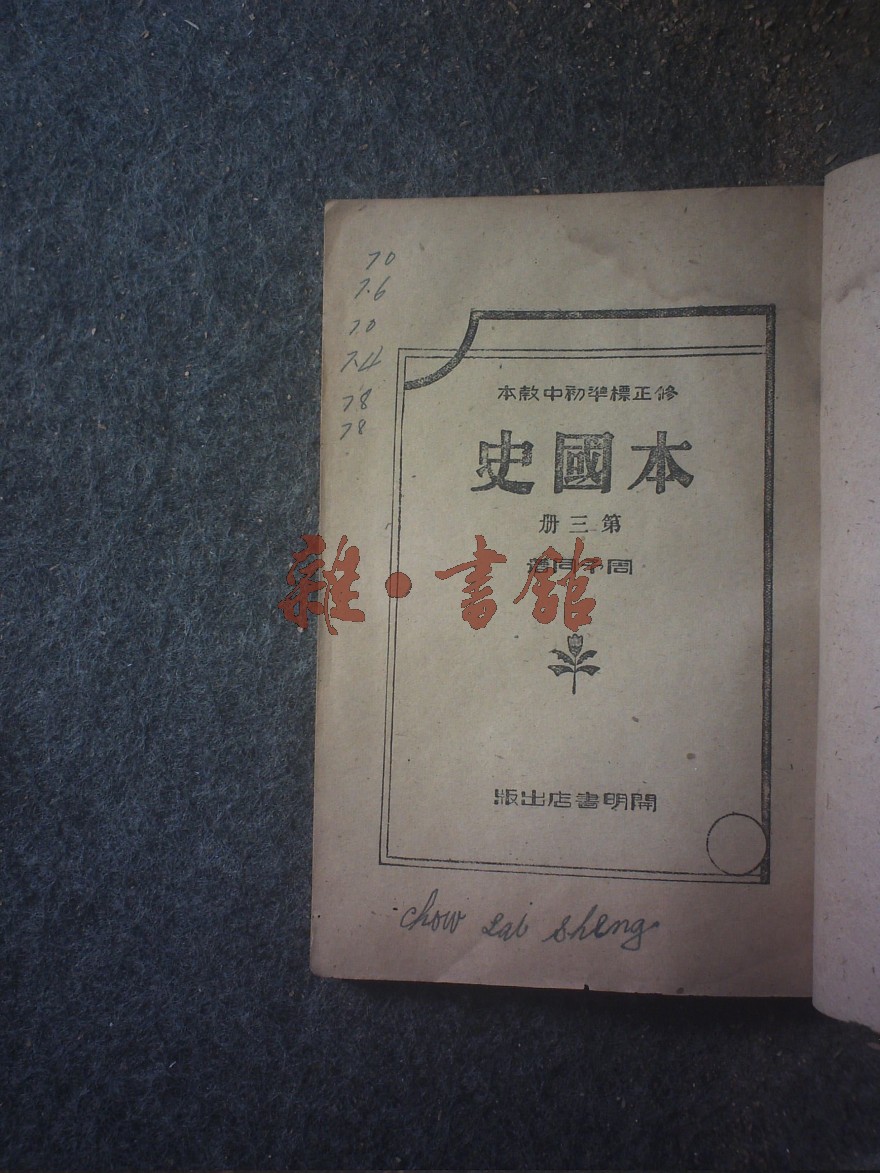 70
7.6
7.0
7.4
78
78
修正標準初中教本
本國史
第三册
周予同著
雜·書館
開明書店出版
chow sheng